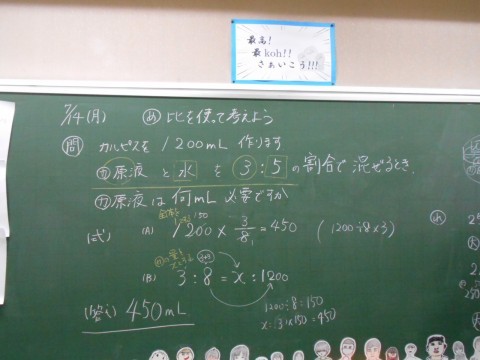 最高!
最koh!!
さぁいこう!!!
7/14(月) め 比を使って考えよう
問 カルピスを 1200mL 作ります
カ原液 と 水 を 3:5 の割合で 混ぜるとき、
カ原液 は 何mL 必要ですか
150
(式) (A) 1200 × 3/8 = 450 (1200÷8×3)
1
(B) 3:8 = x:1200
1200÷8=150
x=3×150=450
(答え) 450mL